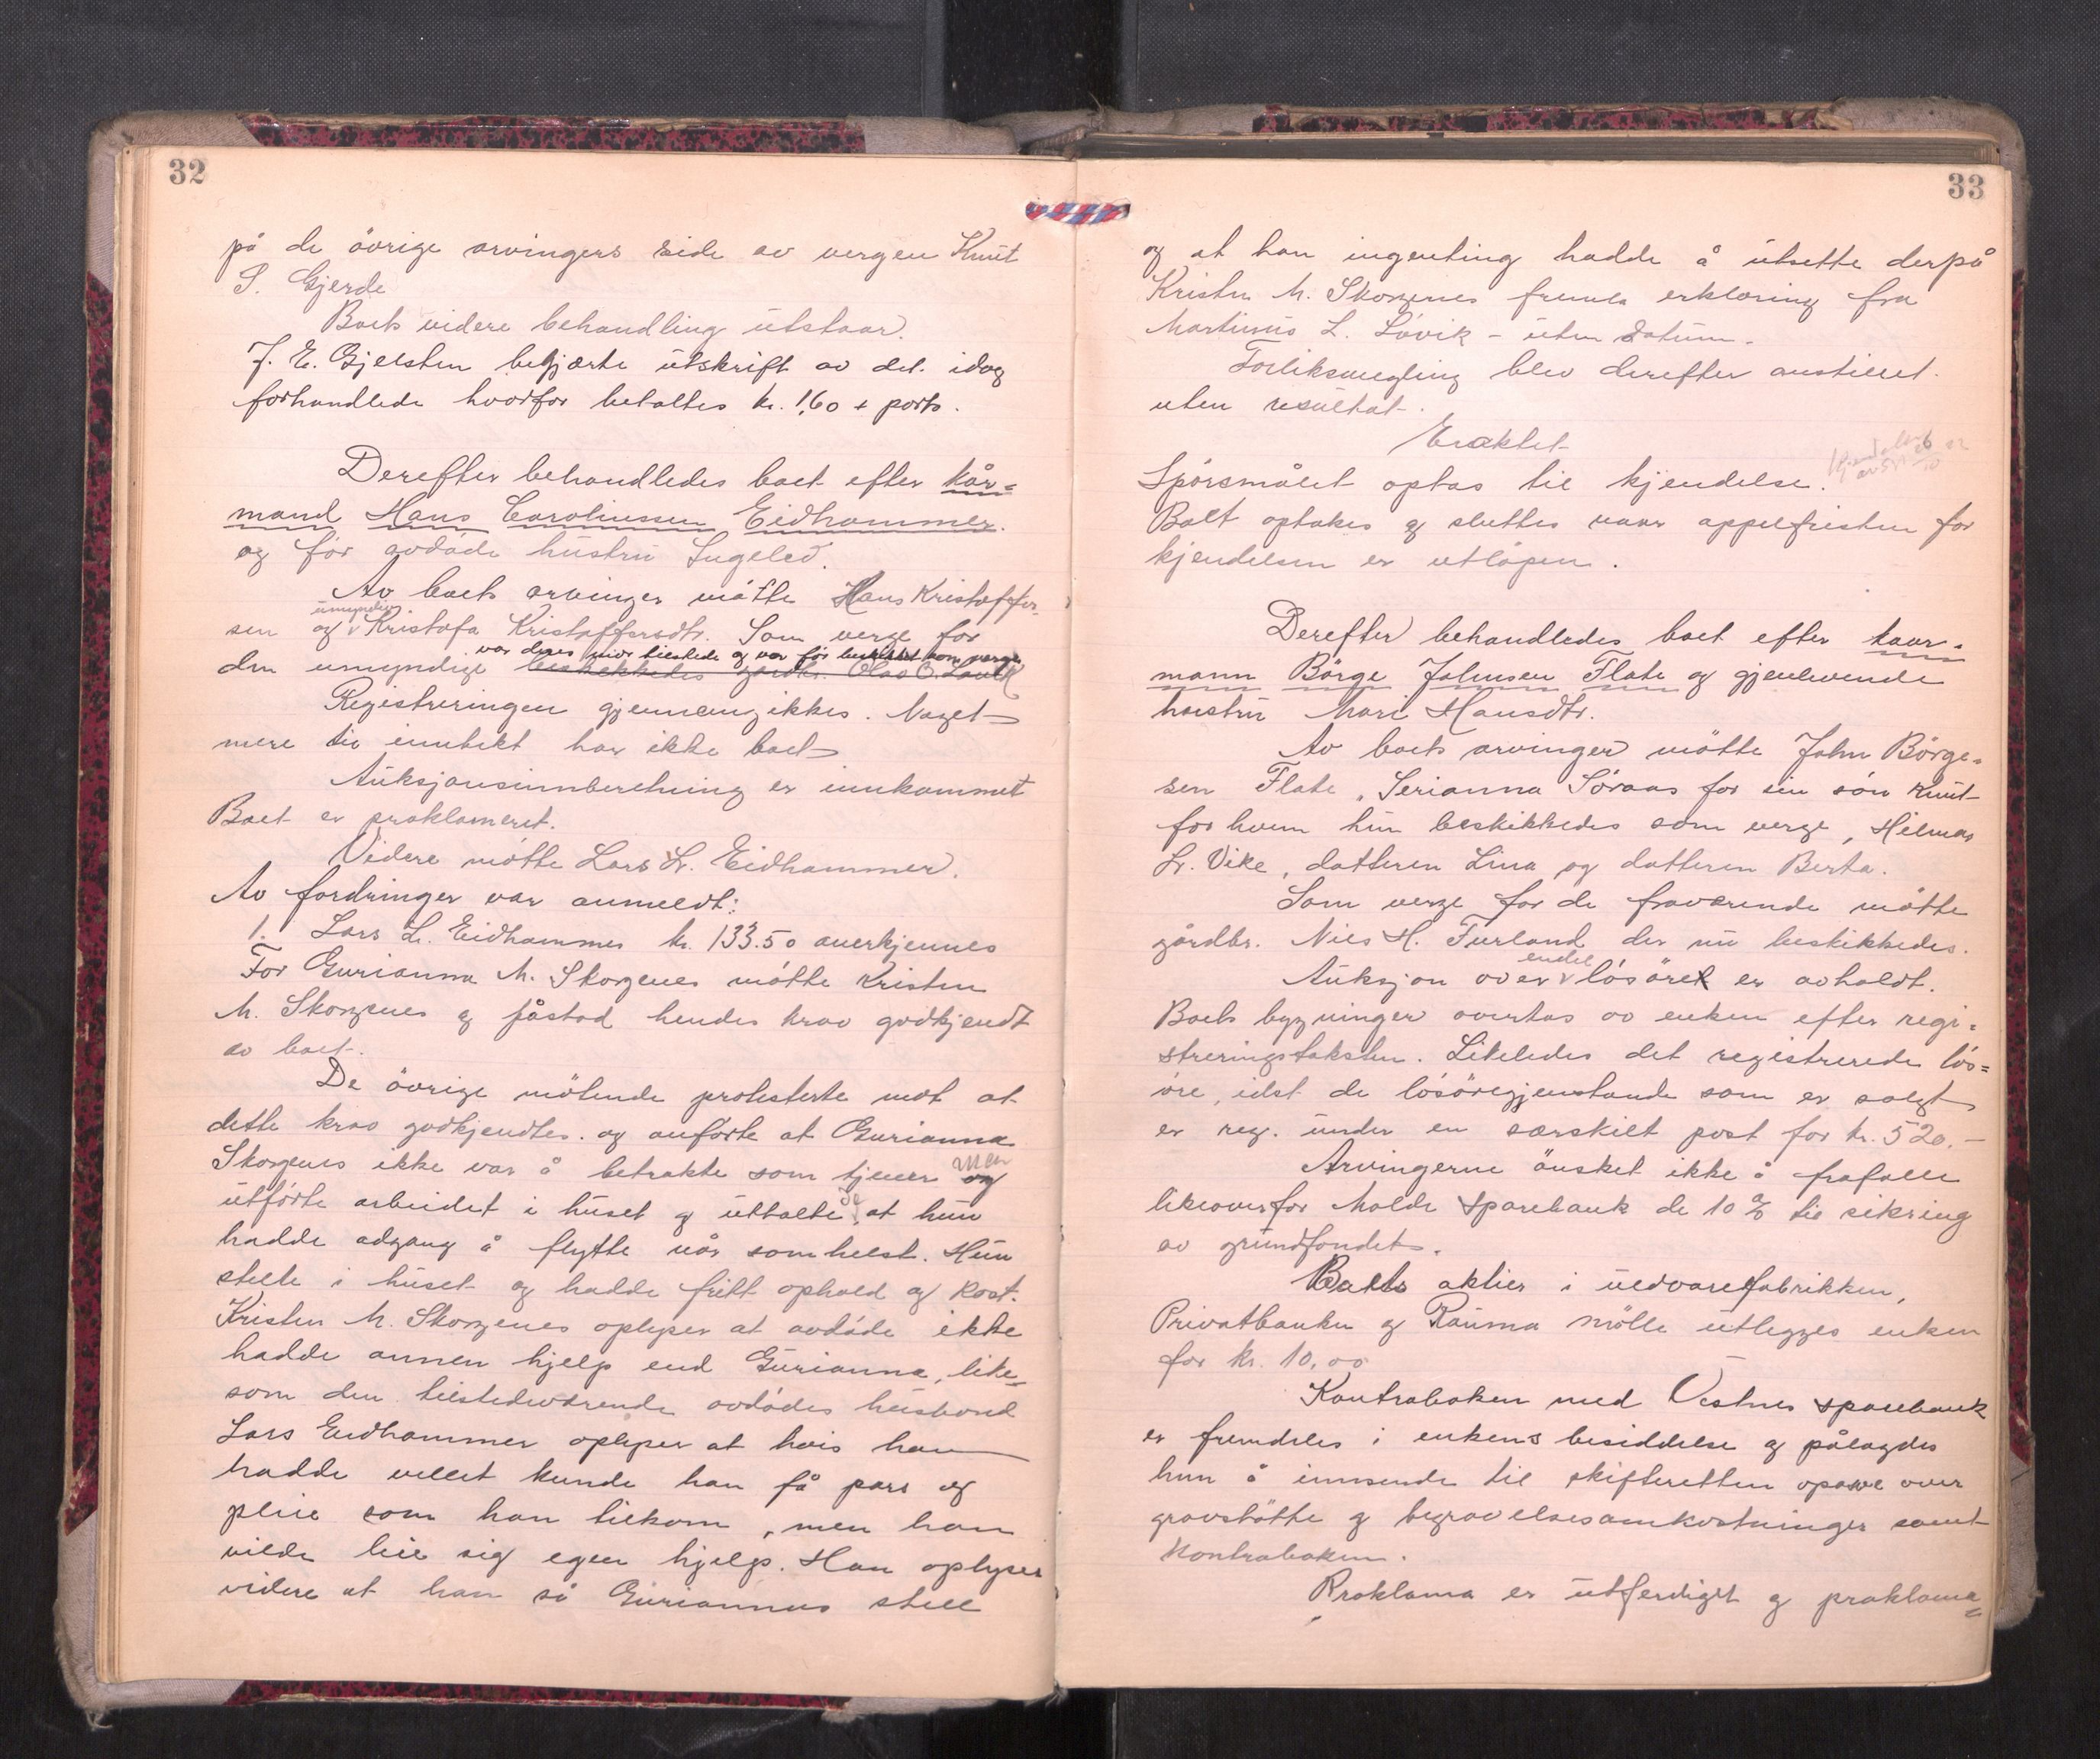 32
på de övrige arvingers side av vergen Knut
S. Gjerde
Boets videre behandling utstaar.
J. E. Gjelsten begjærte utskrift av det idag
forhandlede hvorfor betaltes kr. 1,60 + porto.
Derefter behandledes boet efter kår-
mand Hans Carolinssen Eidhammer.
og før avdöde hustru Ingelev.
Av boets arvinger mötte Hans Kristoffer-
umyndig
sen og Kristofa Kristoffersdtr. Som verge for
var deres mor tilstede og var før beskikket som verge
den umyndige beskikkedes gardbr. Olav O. Lavik
Registreringen gjennemgikkes. Noget
mere til inntekt har ikke boet
Auksjonsinnberetning er innkommet
Boet er proklameret.
Videre mötte Lars L. Eidhammer.
Av fordringer var anmeldt:
1. Lars L. Eidhammer kr. 133.50 anerkjennes
For Gurianna M. Skorgenes mötte Kristen
M. Skorgenes og påstod hendes krav godkjendt
av boet.
De övrige mötende protesterte mot at
dette krav godkjendtes. og anførte at Gurianna
Skorgenes ikke var å betrakte som tjener og
men
utförte arbeidet i huset og uttalte at hun
de
hadde adgang å flytte når somhelst. Hun
stelte i huset og hadde fritt ophold og kost.
Kristen M. Skorgenes oplyser at avdöde ikke
hadde annen hjelp end Gurianna, like-
som den tilstedeværende avdødes husbond
Lars Eidhammer oplyser at hvis han
hadde villet kunde han få pass og
pleie som han tilkom, men han
vilde leie sig egen hjelp. Han oplyser
videre at han så Guriannas stell
33
og at han ingenting hadde å utsette derpå
Kristen M. Skorgenes fremla erklæring fra
Martinus L. Lövik – uten datum.
Forliksmegling blev derefter anstillet
uten resultat.
Eraktet
Spörsmålet optas til kjendelse.
Boet optakes og sluttes naar appelfristen for
kjendelsen er utlöpen.
Derefter behandledes boet efter kaar-
mann Börge Johnsen Flate og gjenlevende
hustru Mari Hansdtr.
Av boets arvinger mötte John Börge-
sen Flate, Serianna Söraas for sin sön Knut
for hvem hun beskikkedes som verge, Hilmar
L. Vike, datteren Lina og datteren Berta.
Som verge for de fraværende mötte
gårdbr. Nils H. Turland der nu beskikkedes.
endel
Auksjon over lösöre er avholdt.
Boets bygninger overtas av enken efter regi-
streringstaksten. Likeledes det registrerede lös-
öre, idet de lösöregjenstande som er solgt
er reg. under en særskilt post for kr. 520.–
Arvingerne önsket ikke å frafalle
likeoverfor Molde Sparebank de 10 % til sikring
av grundfondet.
Boets aktier i uldvarefabrikken,
Privatbanken og Rauma mölle utlegges enken
for kr. 10,00
Kontraboken med Vestnes sparebank
er fremdeles i enkens besiddelse og pålagdes
hun å innsende til skifteretten opgave over
gravstötte og begravelsesomkostninger samt
kontraboken.
Proklama er utferdiget og proklama-